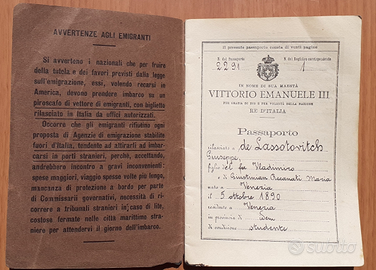 AVVERTENZE AGLI EMIGRANTI
Si avverte i nazionali che per fruire
della tutela e dei favori previsti dalla legge
sull'emigrazione, essi, volendo recarsi in
America, devono prendere imbarco su un
piroscafo di vettore di emigranti, con biglietto
rilasciato in Italia da uffici autorizzati.
Occorre che gli emigranti rifiutino ogni
proposta di Agenzie di emigrazione stabilite
fuori d'Italia, tendente ad attirarli ad imbar-
carsi in porti stranieri, perchè, accettando,
andrebbero incontro a gravi inconvenienti:
spese maggiori, viaggio spesso volte più lungo,
mancanza di protezione a bordo per parte
di Commissarii governativi, necessità di ri-
correre a tribunali stranieri in caso di lite,
costose fermate nelle città marittime stra-
niere per attendervi il giorno dell'imbarco.
Il presente passaporto consta di venti pagine
N. del Passaporto
N. del Registro corrispondente
2291
1
IN NOME DI SUA MAESTÀ
VITTORIO EMANUELE III
PER GRAZIA DI DIO E PER VOLONTÀ DELLA NAZIONE
RE D'ITALIA
Passaporto
rilasciato a de Lassotovitch
Giuseppe
figlio del fu Vladimiro
e di Giustinian Recanati Maria
nato a Venezia
il 5 ottobre 1890
residente a Venezia
in provincia di
di condizione studente
subito